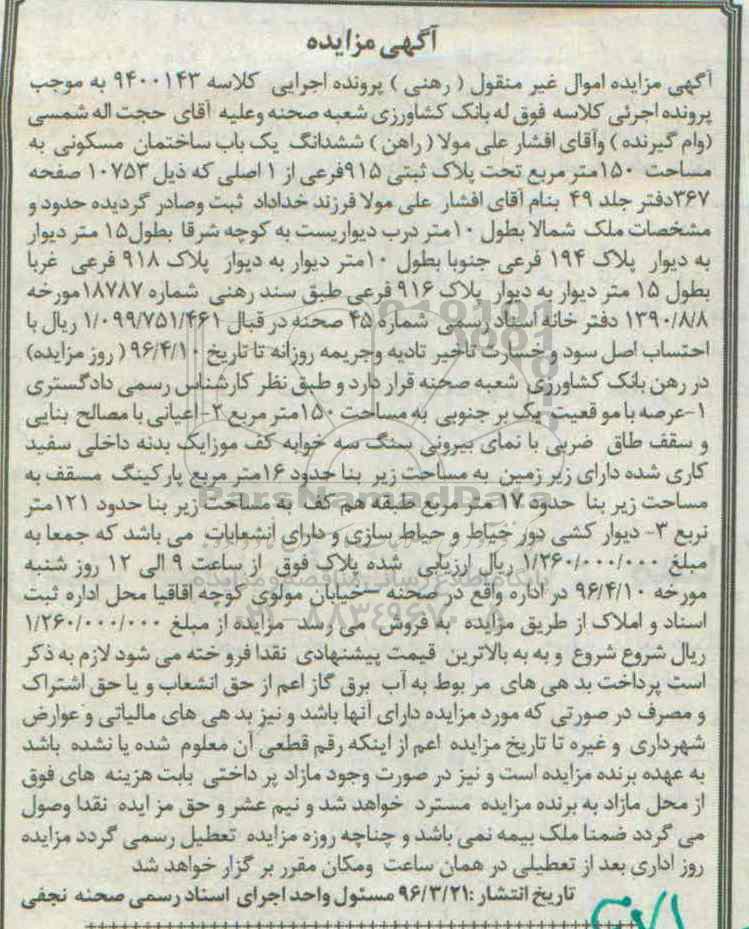 آگهی مزایده
آگهی مزایده اموال غیر منقول ( رهنی ) پرونده اجرایی کلاسه ۹۴۰۰۱۴۳ به موجب
پرونده اجرئی کلاسه فوق له بانک کشاورزی شعبه صحنه وعلیه آقای حجت اله شمسی
(وام گیرنده ) وآقای افشار علی مولا ( راهن ) ششدانگ یک باب ساختمان مسکونی به
مساحت ۱۵۰متر مربع تحت پلاک ثبتی ۹۱۵فرعی از ۱ اصلی که ذیل ۱۰۷۵۳ صفحه
۳۶۷دفتر جلد ۴۹ بنام آقای افشار علی مولا فرزند خداداد ثبت وصادر گردیده حدود و
مشخصات ملک شمالا بطول ۱۰متر درب دیواریست به کوچه شرقا بطول۱۵ متر دیوار
به دیوار پلاک ۱۹۴ فرعی جنوبا بطول ۱۰متر دیوار به دیوار پلاک ۹۱۸ فرعی غربا
بطول ۱۵ متر دیوار به دیوار پلاک ۹۱۶ فرعی طبق سند رهنی شماره ۱۸۷۸۷مورخه
۱۳۹۰/۸/۸ دفتر خانه اسناد رسمی شماره ۴۵ صحنه در قبال ۱/۰۹۹/۷۵۱/۴۶۱ ریال با
احتساب اصل سود و خسارت تاخیر تادیه وجریمه روزانه تا تاریخ ۹۶/۴/۱۰ ( روز مزایده)
در رهن بانک کشاورزی شعبه صحنه قرار دارد و طبق نظر کارشناس رسمی دادگستری
۱-عرصه با مو قعیت یک بر جنوبی به مساحت ۱۵۰متر مربع ۲-اعیانی با مصالح بنایی
و سقف طاق ضربی با نمای بیرونی سنگ سه خوابه کف موزایک بدنه داخلی سفید
کاری شده دارای زیر زمین به مساحت زیر بنا حدود ۱۶متر مربع پارکینگ مسقف به
مساحت زیر بنا حدود ۱۷ متر مربع طبقه هم کف به مساحت زیر بنا حدود ۱۲۱متر
نربع ۳- دیوار کشی دور حیاط و حیاط سازی و دارای انشعابات می باشد که جمعا به
مبلغ ۱/۲۶۰/۰۰۰/۰۰۰ ریال ارزیابی شده پلاک فوق از ساعت ۹ الی ۱۲ روز شنبه
مورخه ۹۶/۴/۱۰ در اداره واقع در صحنه –خیابان مولوی کوچه اقاقیا محل اداره ثبت
اسناد و املاک از طریق مزایده به فروش می رسد مزایده از مبلغ ۱/۲۶۰/۰۰۰/۰۰۰
ریال شروع شروع و به به بالاترین قیمت پیشنهادی نقدا فرو خته می شود لازم به ذکر
است پرداخت بد هی های مر بوط به آب برق گاز اعم از حق انشعاب و یا حق اشتراک
و مصرف در صورتی که مورد مزایده دارای آنها باشد و نیز بد هی های مالیاتی و عوارض
شهرداری و غیره تا تاریخ مزایده اعم از اینکه رقم قطعی آن معلوم شده یا نشده باشد
به عهده برنده مزایده است و نیز در صورت وجود مازاد پر داختی بابت هزینه های فوق
از محل مازاد به برنده مزایده مسترد خواهد شد و نیم عشر و حق مز ایده نقدا وصول
می گردد ضمنا ملک بیمه نمی باشد و چناچه روزه مزایده تعطیل رسمی گردد مزایده
روز اداری بعد از تعطیلی در همان ساعت ومکان مقرر بر گزار خواهد شد
تاریخ انتشار :۹۶/۳/۲۱ مسئول واحد اجرای اسناد رسمی صحنه نجفی
ParsNamadData